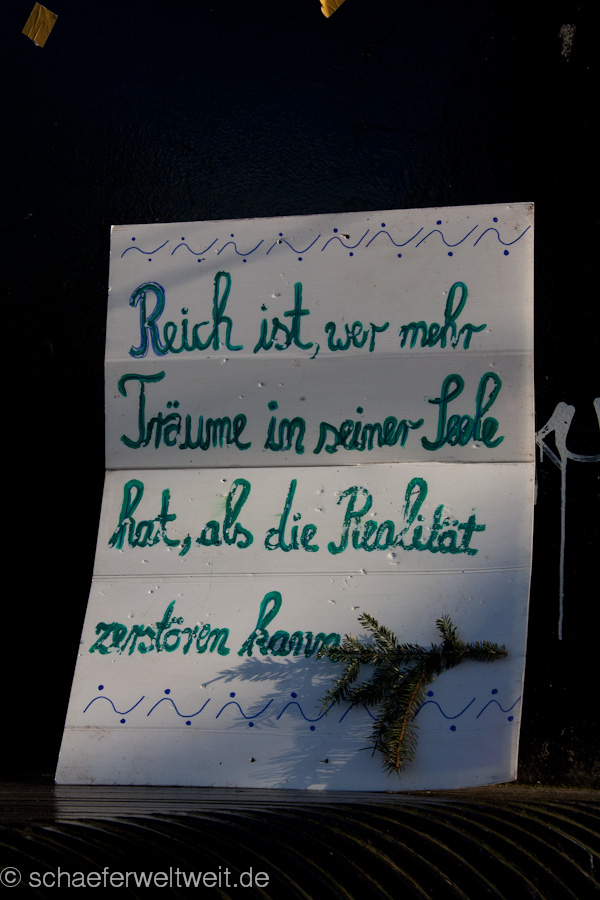 Reich ist, wer mehr
Träume in seiner Seele
hat, als die Realität
zerstören kann
© schaeferweltweit.de